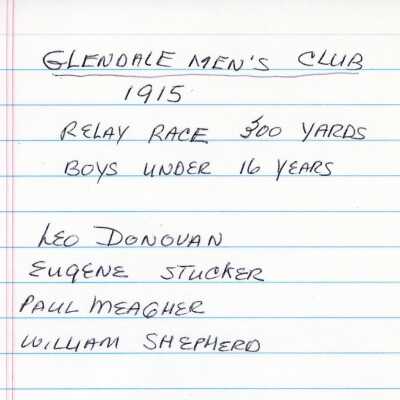 GLENDALE MEN'S CLUB
1915
RELAY RACE 300 YARDS
BOYS UNDER 16 YEARS
LEO DONOVAN
EUGENE STUCKER
PAUL MEAGHER
WILLIAM SHEPHERD